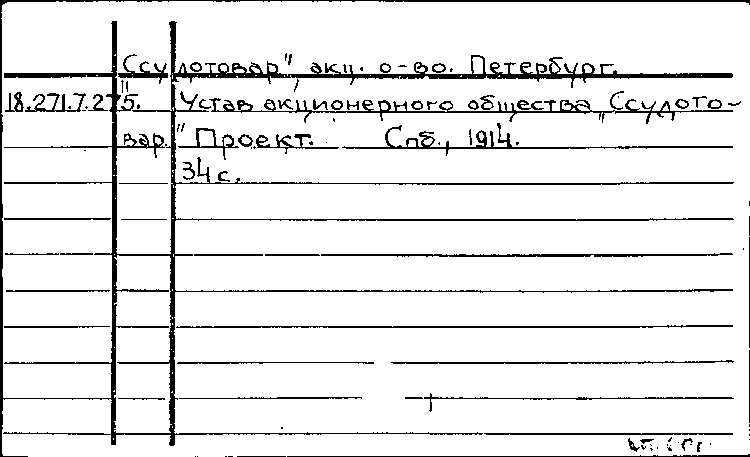 Ссудотовар" акц. о-во. Петербург.
18.271.7.275. Устав акционерного общества „Ссудото-
вар" Проект. Спб., 1914.
34 с.